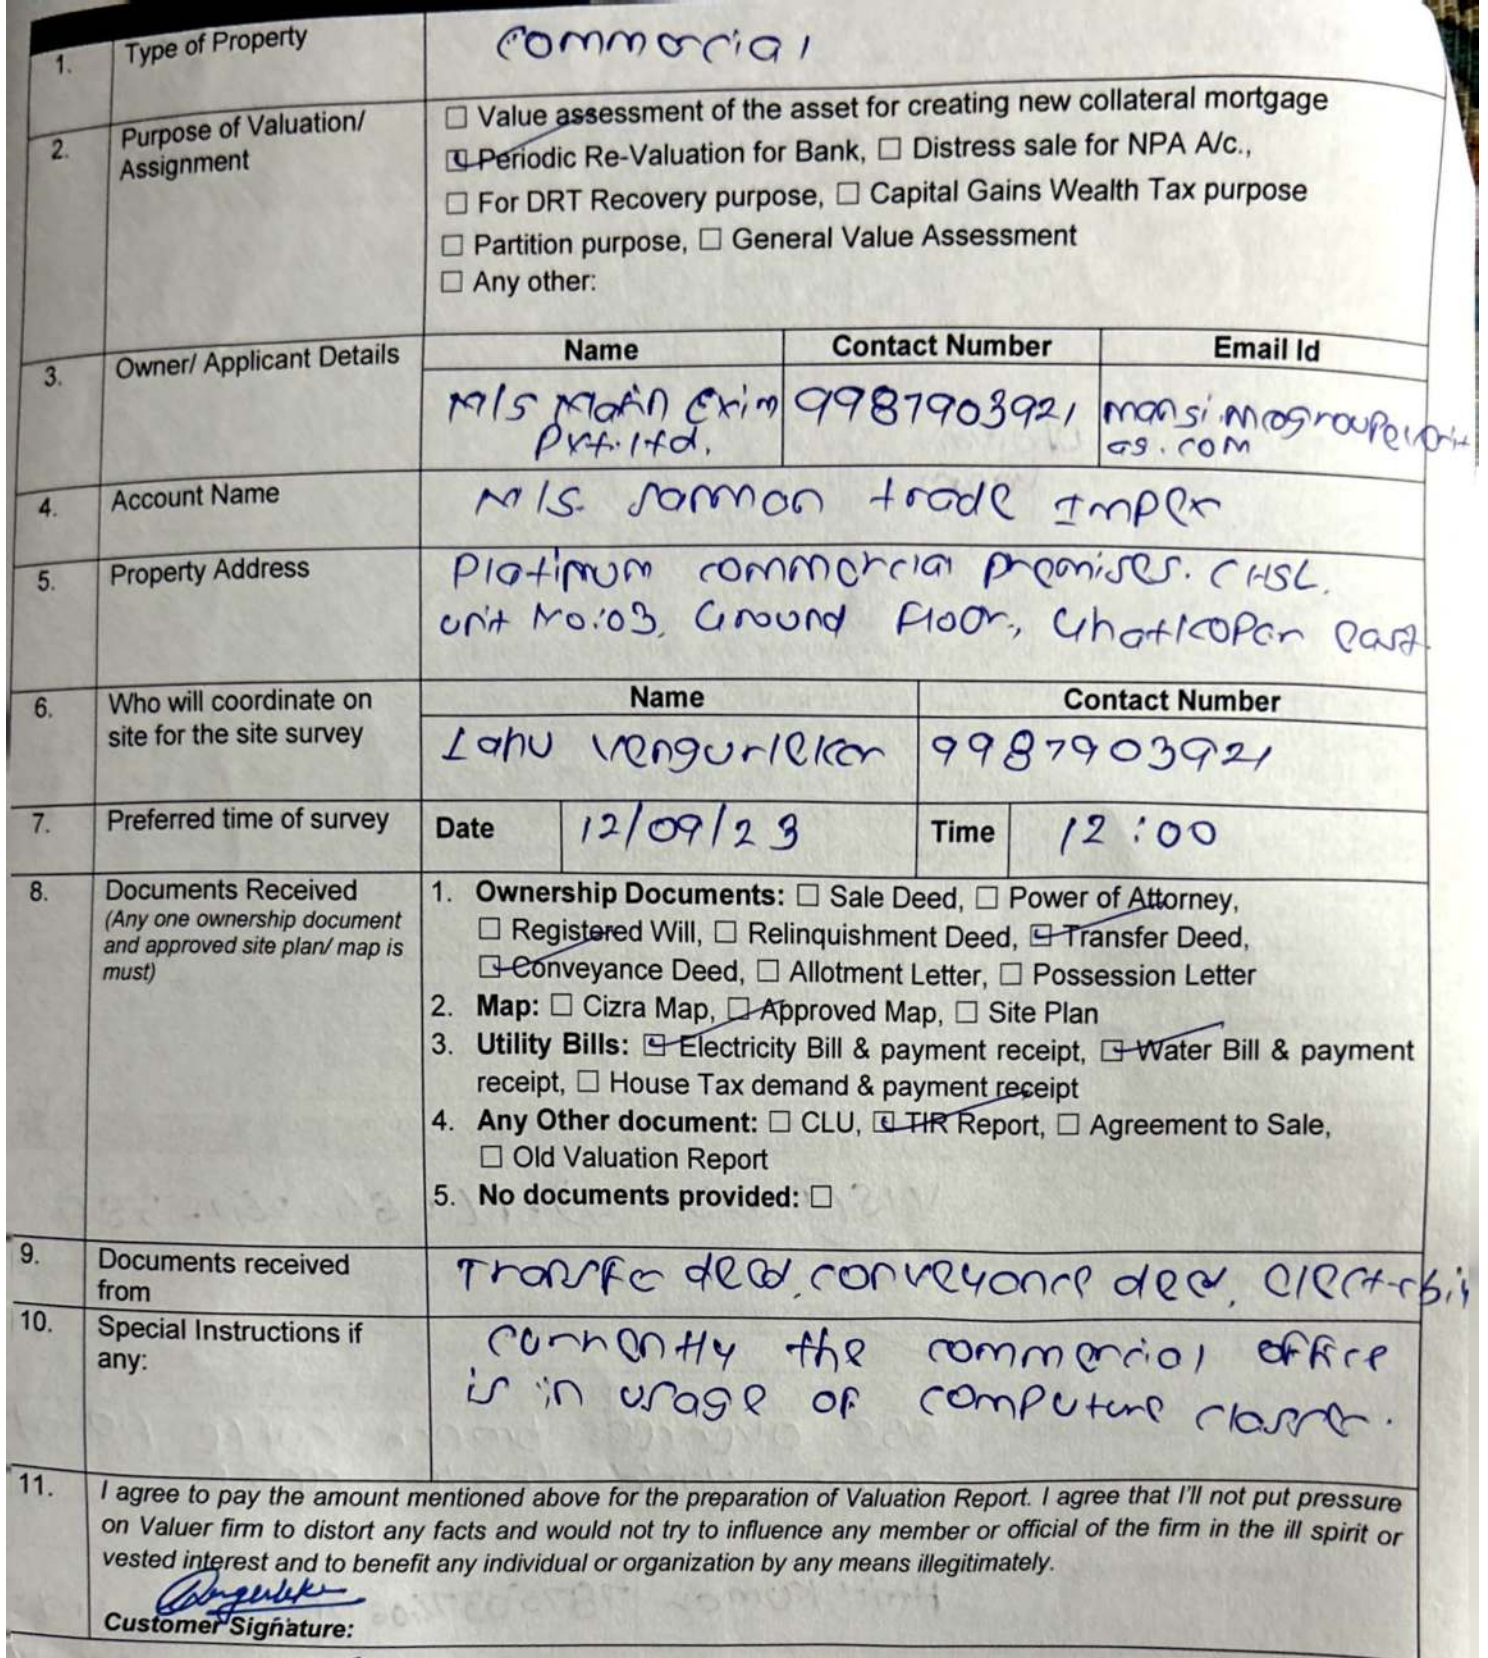 1. Type of Property commercial
2. Purpose of Valuation/ Assignment
☐ Value assessment of the asset for creating new collateral mortgage
☑ Periodic Re-Valuation for Bank, ☐ Distress sale for NPA A/c.,
☐ For DRT Recovery purpose, ☐ Capital Gains Wealth Tax purpose
☐ Partition purpose, ☐ General Value Assessment
☐ Any other:
3. Owner/ Applicant Details
Name Contact Number Email Id
M/S Exim 9987903921
Pvt. ltd. .com
4. Account Name M/S. trade Impex
5. Property Address Platinum commercial premises. CHSL.
unit No:03, Ground Floor, Ghatkopar east
6. Who will coordinate on site for the site survey
Name Contact Number
Lahu vengurlekar 9987903921
7. Preferred time of survey Date 12/09/23 Time 12:00
8. Documents Received
(Any one ownership document
and approved site plan/ map is
must)
1. Ownership Documents: ☐ Sale Deed, ☐ Power of Attorney,
☐ Registered Will, ☐ Relinquishment Deed, ☑ Transfer Deed,
☑ Conveyance Deed, ☐ Allotment Letter, ☐ Possession Letter
2. Map: ☐ Cizra Map, ☑ Approved Map, ☐ Site Plan
3. Utility Bills: ☑ Electricity Bill & payment receipt, ☑ Water Bill & payment
receipt, ☐ House Tax demand & payment receipt
4. Any Other document: ☐ CLU, ☑ TIR Report, ☐ Agreement to Sale,
☐ Old Valuation Report
5. No documents provided: ☐
9. Documents received from
Transfer deed, conveyance deed,
10. Special Instructions if any:
currently the commercial office
is in usage of computure
11. I agree to pay the amount mentioned above for the preparation of Valuation Report. I agree that I'll not put pressure
on Valuer firm to distort any facts and would not try to influence any member or official of the firm in the ill spirit or
vested interest and to benefit any individual or organization by any means illegitimately.
Customer Signature: